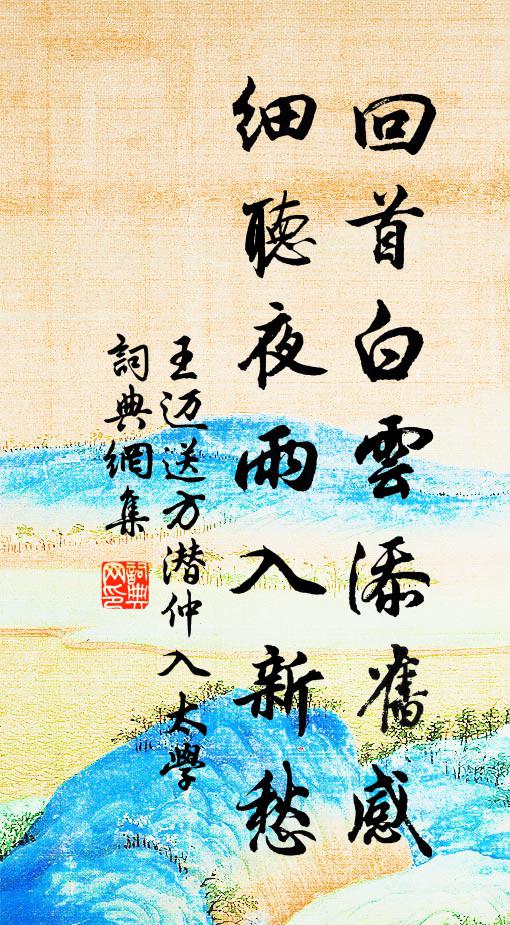 回首白雲添舊感
細聽夜雨入新愁
王迈送方潜仲入太學
詞典網集
詞典网印